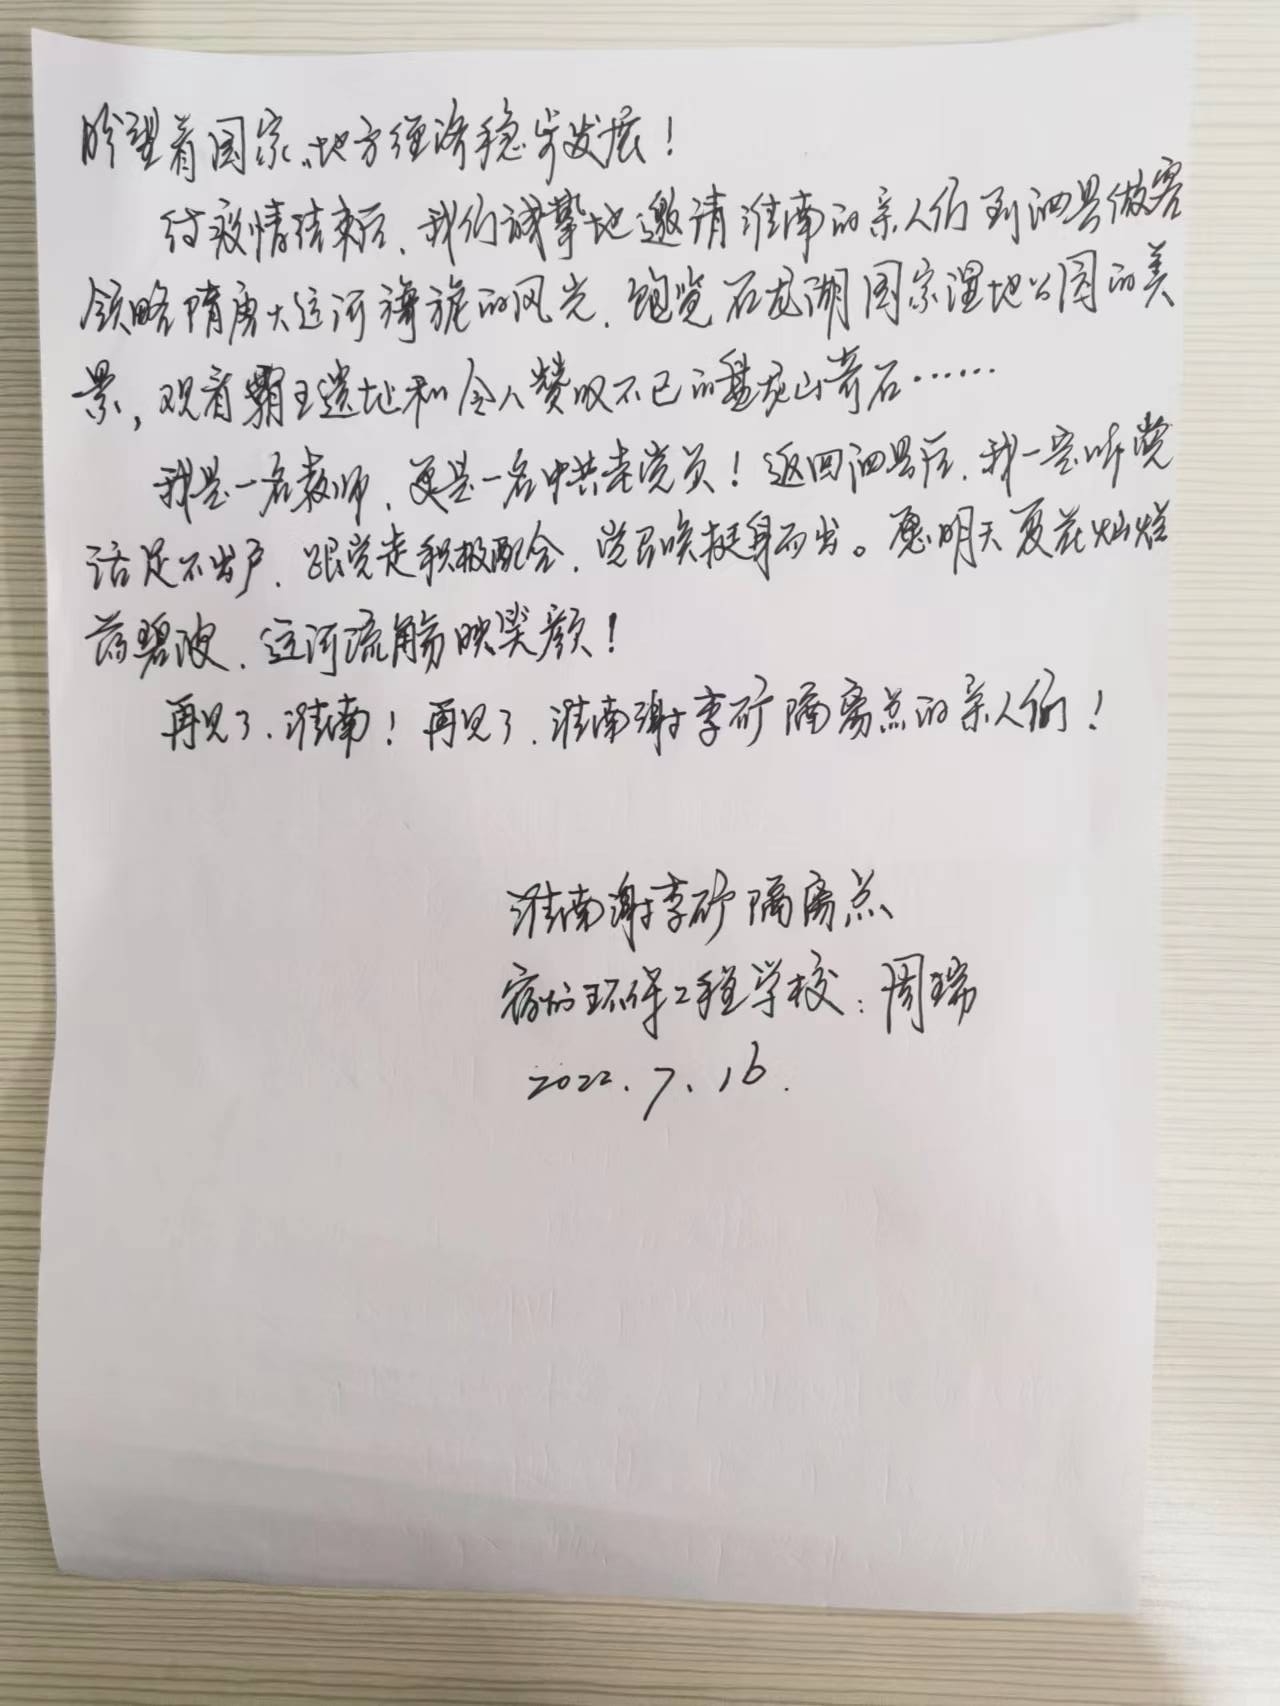 盼望着国家、地方经济稳步发展！
待疫情结束后，我们诚挚地邀请淮南的亲人们到泗县做客
领略隋唐大运河旖旎的风光，饱览石龙湖国家湿地公园的美
景，观看霸王遗址和令人赞叹不已的盘龙山奇石……
我是一名教师，更是一名中共老党员！返回泗县后，我一定听党
话足不出户，跟党走积极配合，党召唤挺身而出。愿明天夏花灿烂
荡碧波，运河流觞映笑颜！
再见了，淮南！再见了，淮南谢李矿隔离点的亲人们！
淮南谢李矿隔离点
宿州环保工程学校：周瑞
2022.7.16.